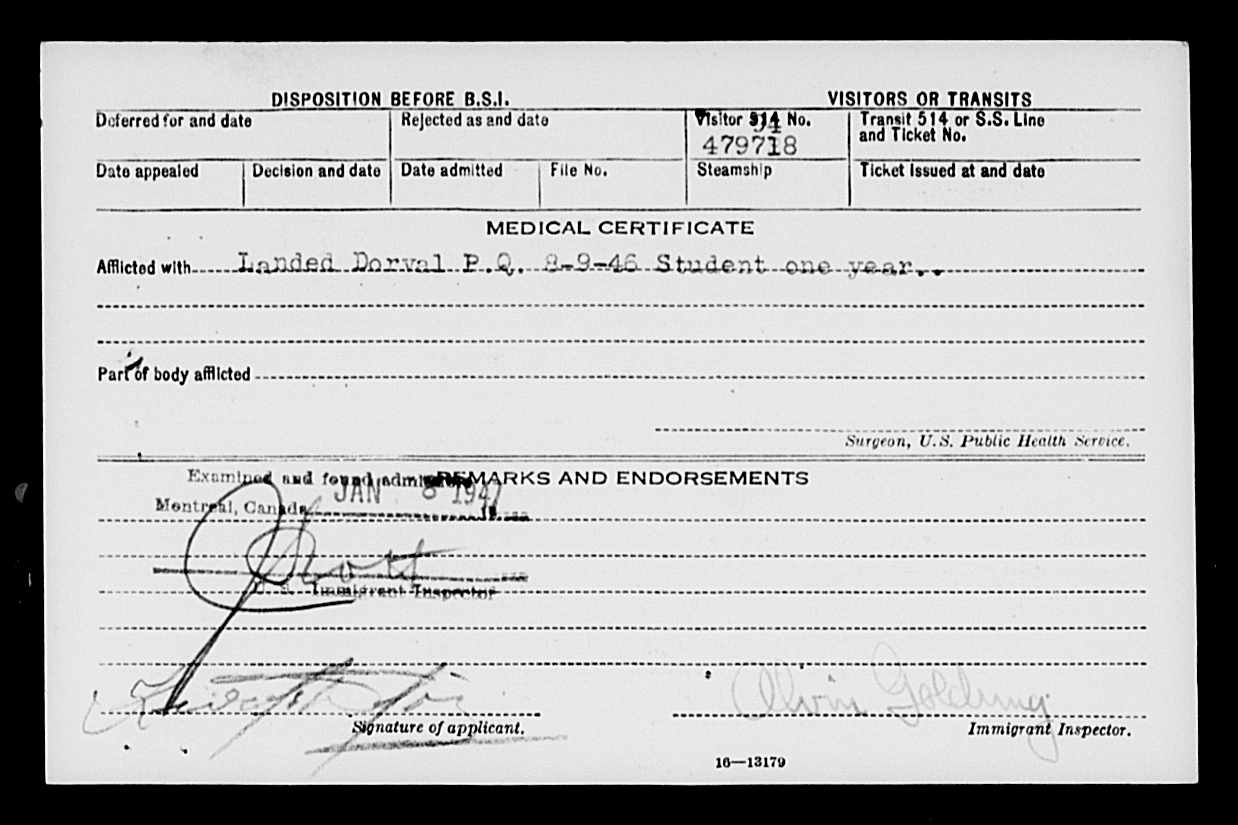 DISPOSITION BEFORE B.S.I.
VISITORS OR TRANSITS
Deferred for and date
Rejected as and date
Visitor 514 No.
94
479718
Transit 514 or S.S. Line
and Ticket No.
Date appealed
Decision and date
Date admitted
File No.
Steamship
Ticket issued at and date
MEDICAL CERTIFICATE
Afflicted with Landed Dorval P.Q. 8-9-46 Student one year..
Part of body afflicted
Surgeon, U.S. Public Health Service.
REMARKS AND ENDORSEMENTS
Examined and found
JAN 8 1947
Montreal, Canada
U. S. Immigrant Inspector
Alvin Golding
Signature of applicant.
Immigrant Inspector.
16—13179